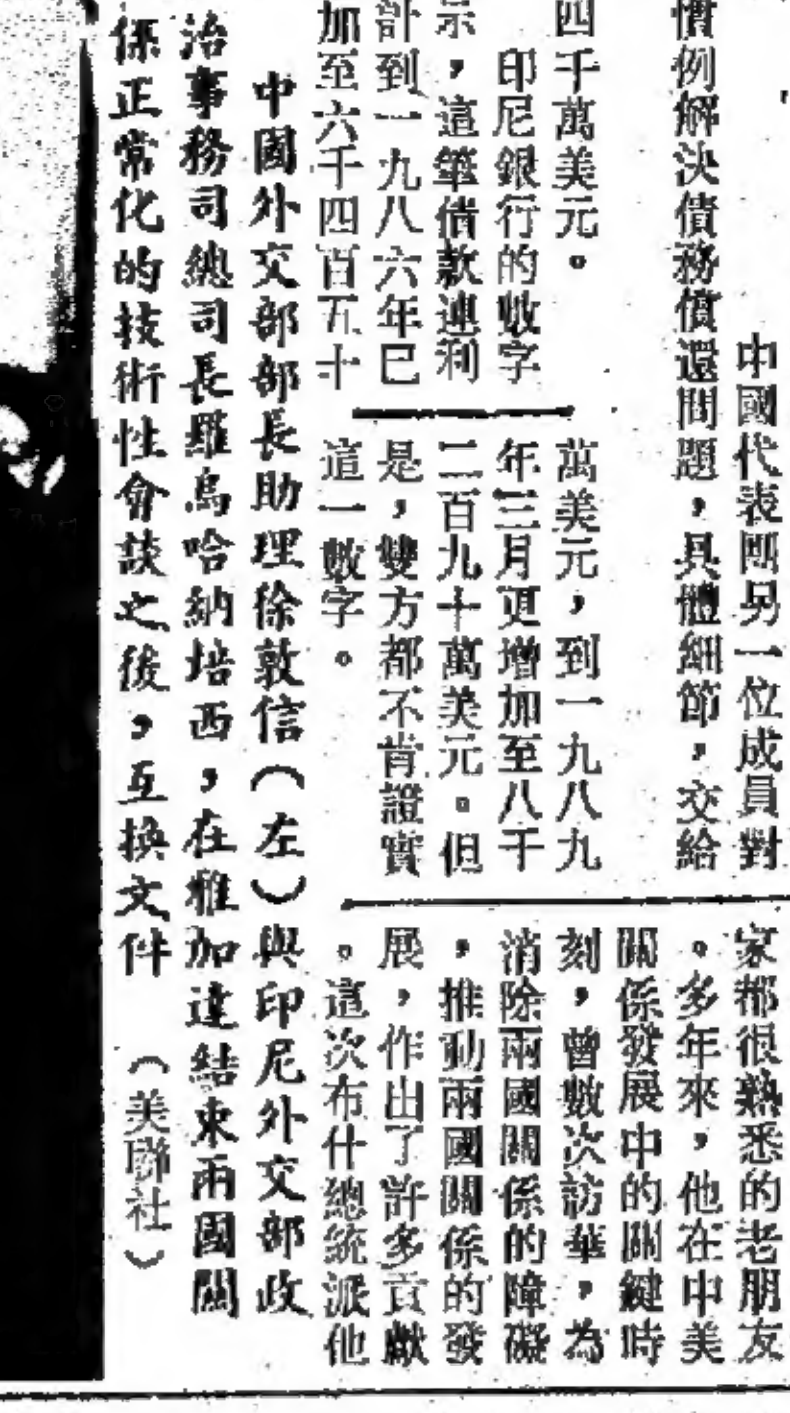 中國代表團另一位成員對
慣例解決債務償還問題，具體細節，交給
四千萬美元。
印尼銀行的數字
示，這筆借款連利
計到一九八六年已
加至六千四百五十
萬美元，到一九八九
年三月更增加至八千
二百九十萬美元。但
是，雙方都不肯證實
這一數字。
家都很熟悉的老朋友
。多年來，他在中美
關係發展中的關鍵時
刻，曾數次訪華，為
消除兩國關係的障礙
，推動兩國關係的發
展，作出了許多貢獻
。這次布什總統派他
中國外交部部長助理徐敦信（左）與印尼外交部政
治事務司總司長羅烏哈納培西，在雅加達結束兩國關
係正常化的技術性會談之後，互換文件　（美聯社）